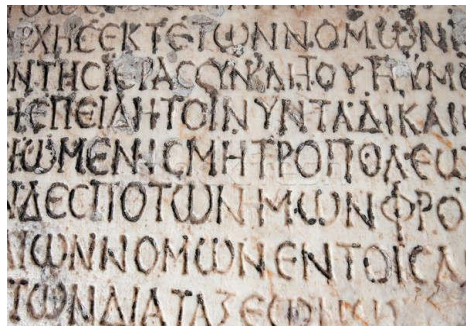 ΡΧΗCΕΚΤΕΤΩΝΝΟΜΩΝ
ΝΤΗCΙΕΡΑCCΥΝΚΛΗΤΟΥ
ΕΠΕΙΔΗΤΟΙΝΥΝΤΑΔΙΚΑΙ
ΩΜΕΝΗCΜΗΤΡΟΠΟΛΕΩ
ΔΕCΠΟΤΩΝΗΜΩΝΦΡΟ
ΩΝΝΟΜΩΝΕΝΤΟΙCΑ
ΤΩΝΔΙΑΤΑΞΕΩΝ